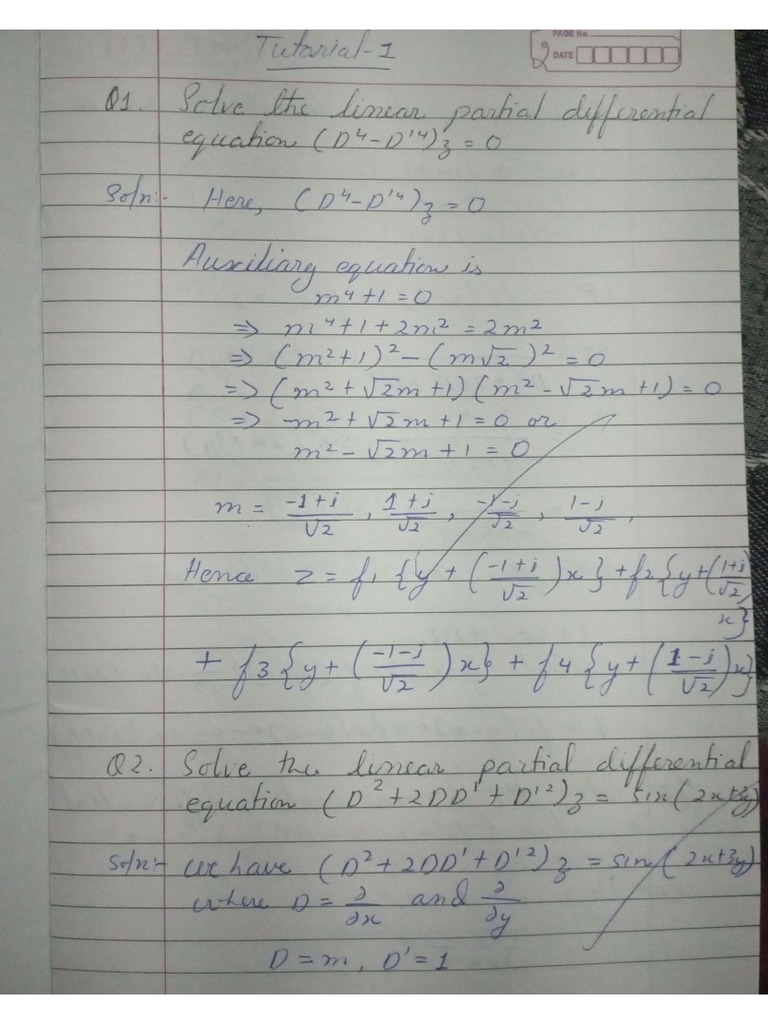 PAGE No.
DATE
Tutorial-1
Q1. Solve the linear partial differential
equation (D⁴-D'⁴)z = 0
Soln:- Here, (D⁴-D'⁴)z = 0
Auxiliary equation is
m⁴+1=0
⇒ m⁴+1+2m² = 2m²
⇒ (m²+1)² - (m√2)² = 0
=> (m²+√2m+1) (m²-√2m+1) = 0
⇒ m²+√2m+1=0 or
m²-√2m+1=0
m = (-1+i)/√2, (1+i)/√2, (-1-i)/√2, (1-i)/√2,
Hence z = f1 {y + ((-1+i)/√2)x} + f2 {y+((1+i)/√2)
x}
+ f3 {y+((-1-i)/√2)x} + f4 {y+((1-i)/√2)x}
Q2. Solve the linear partial differential
equation (D²+2DD'+D'²)z = sin(2x+3y)
Soln:- we have (D²+2DD'+D'²)z = sin(2x+3y)
where D = ∂/∂x and ∂/∂y
D=m, D'=1